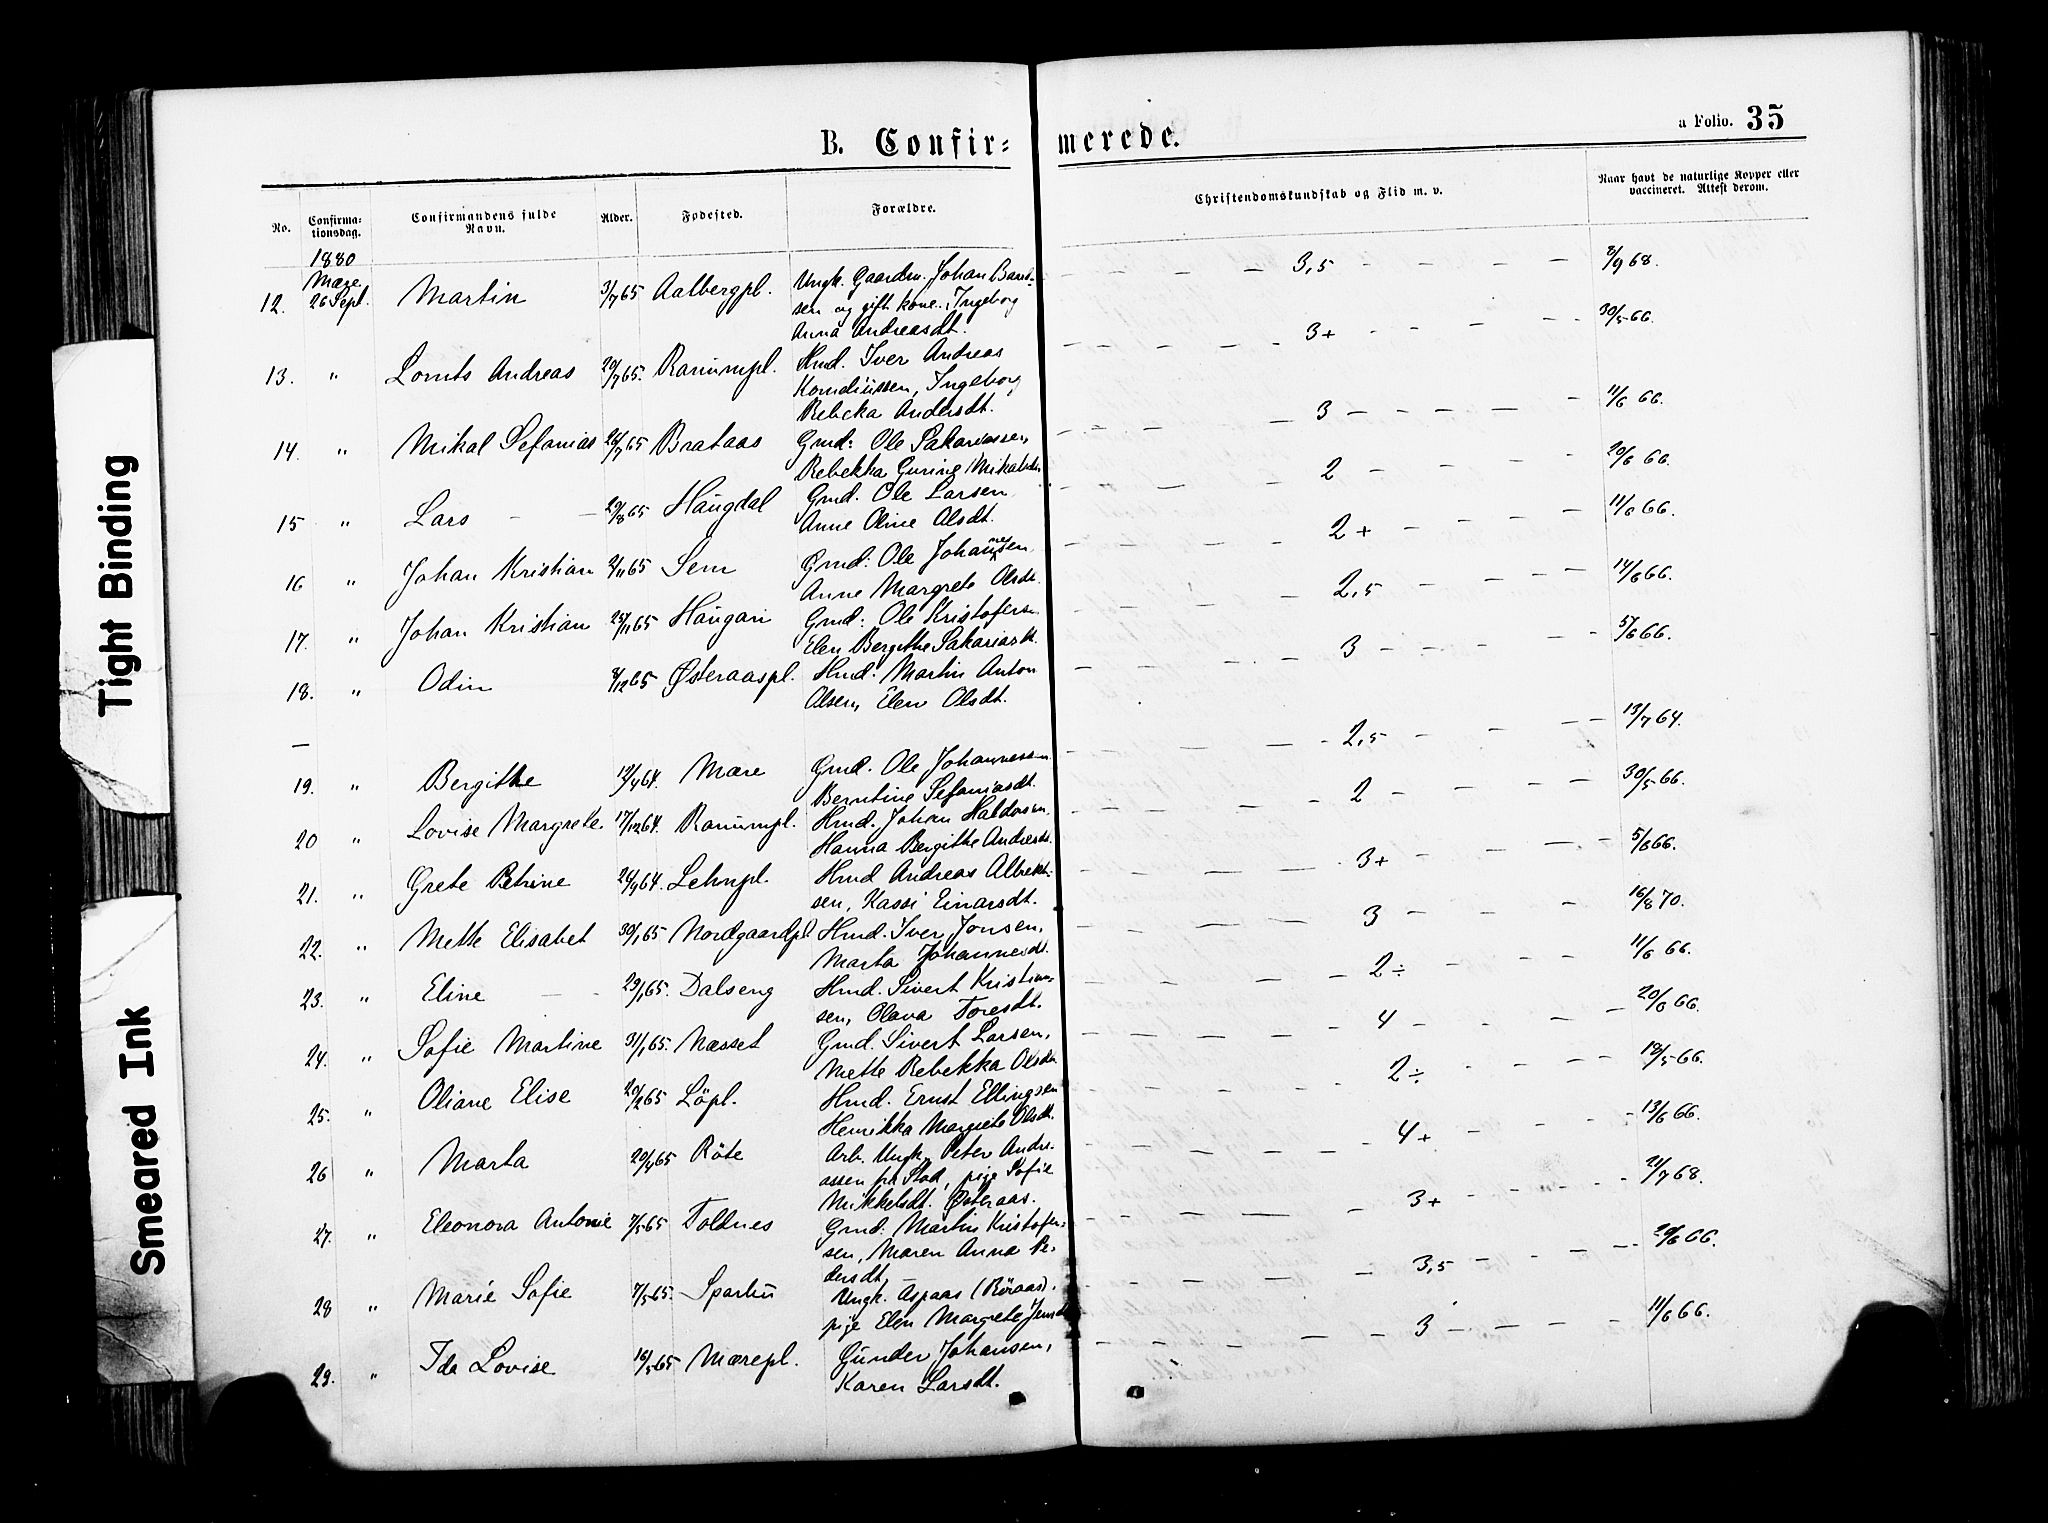 Tight Binding
Smeared Ink
B. Confir=merede.
a Folio. 35
No. Confirma-tionsdag. Confirmandens fulde Navn. Alder. Fødested. Forældre. Christendomskundskab og Flid m. v. Naar havt de naturlige Kopper eller vaccineret. Attest derom.
1880
Mære
12. 26 Sept. Martin 3/7 65 Aalbergpl. Ungk. Gaardm. Johan Bard- 3,5 8/9 68.
sen og gift kone. Ingeborg
Anna Andreasdt.
13. " Lornts Andreas 20/7 65. Ranumpl. Hmd. Iver Andreas 3+ 30/5 66.
Ingeborg
Rebekka Andersdt.
14. " Mikal Sefanias 28/7 65 Brataas Gmd: Ole Sakariassen, 3 11/6 66.
Rebekka Gurine Mikalsdt.
15 " Lars 29/8 65 Haugdal Gmd. Ole Larsen 2 20/6 66.
Anne Oline Olsdt.
16 " Johan Kristian 2/11 65 Sem Gmd: Ole Johannesen 2+ 11/6 66.
Anne Margrete Olsdt.
17. " Johan Kristian 25/11 65 Haugan Gmd: Ole Kristofersn 2,5 14/6 66.
Elen Bergithe Sakariasdt.
18. " Odin 8/12 65 Østeraaspl. Hmd. Martin Anton 3 5/6 66.
Olsen, Elen Olsdt.
19. " Bergithe 12/4 64. Mære Gmd. Ole Johannessen 2,5 13/7 64.
Berntine Sefaniasdt.
20 " Lovise Margrete 17/12 64. Ranumpl. Hmd. Johan Haldosen, 2 30/5 66.
Hanna Bergithe Andreasdt.
21. " Grete Petrine 24/9 64. Lehnpl. Hmd Andreas Albrekt- 3+ 5/6 66.
sen, Kassi Einarsdt.
22. " Mette Elisabet 30/1 65 Nordgaardpl. Hmd. Iver Jonsen, 3 16/8 70.
Marta Johannesdt.
23. " Eline 29/1 65. Dalseng Hmd. Sivert Kristian- 2÷ 11/6 66.
sen, Olava Toresdt.
24. " Sofie Martine 31/1 65. Næsset Gmd. Sivert Larsen, 4 20/6 66.
Mette Rebekka Olsdt.
25. " Oliane Elise 20/2 65 Löpl. Hmd. Ernst Ellingsen 2÷ 18/5 66.
Henrikka Margrete Olsdt.
26 " Marta 20/4 65 Röte Arb. Ungk. Peter Andre- 4+ 13/6 66.
assen fra Stod, pige Sofie
Mikkelsdt. Østeraas.
27. " Eleonora Antonie 7/5 65 Toldnes Gmd. Martin Kristofer- 3+ 21/7 68.
sen, Maren Anna Pe-
dersdt,
28 " Marie Sofie 7/5 65. Sparbu Ungk. Aspaas (Röraas), 3,5 20/6 66.
pige Elen Margrete Jensdt.
29. " Ida Lovise 16/5 65 Mærepl. Gunder Johansen, 3 11/6 66.
Karen Larsdt.